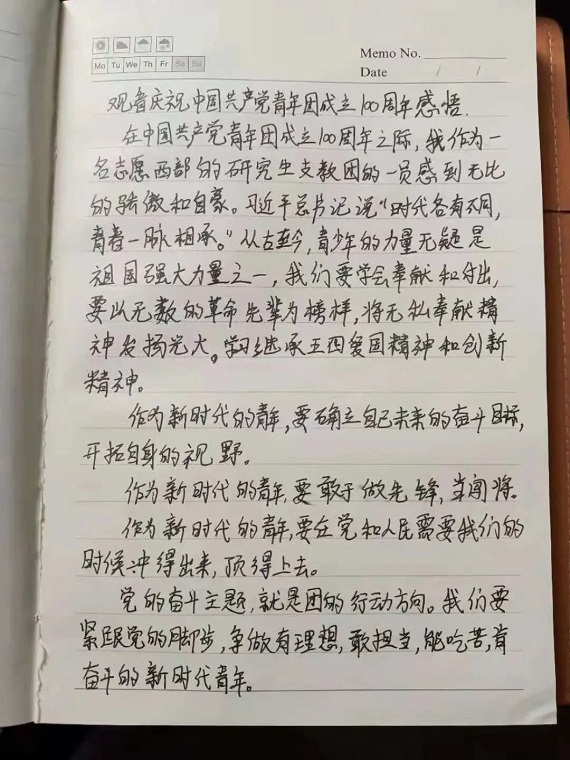 Mo Tu We Th Fr Sa Su
Memo No.
Date / /
观看庆祝中国共产党青年团成立100周年感悟.
在中国共产党青年团成立100周年之际,我作为一
名志愿西部的研究生支教团的一员感到无比
的骄傲和自豪。习近平总书记说“时代各有不同,
青春一脉相承。”从古至今,青少年的力量无疑是
祖国强大力量之一,我们要学会奉献和付出,
要以无数的革命先辈为榜样,将无私奉献精
神发扬光大。学习继承五四爱国精神和创新
精神。
作为新时代的青年,要确立自己未来的奋斗目标,
开拓自身的视野。
作为新时代的青年,要敢于做先锋,当闯将.
作为新时代的青年,要在党和人民需要我们的
时候冲得出来,顶得上去。
党的奋斗主题,就是团的行动方向。我们要
紧跟党的脚步,争做有理想,敢担当,能吃苦,肯
奋斗的新时代青年。